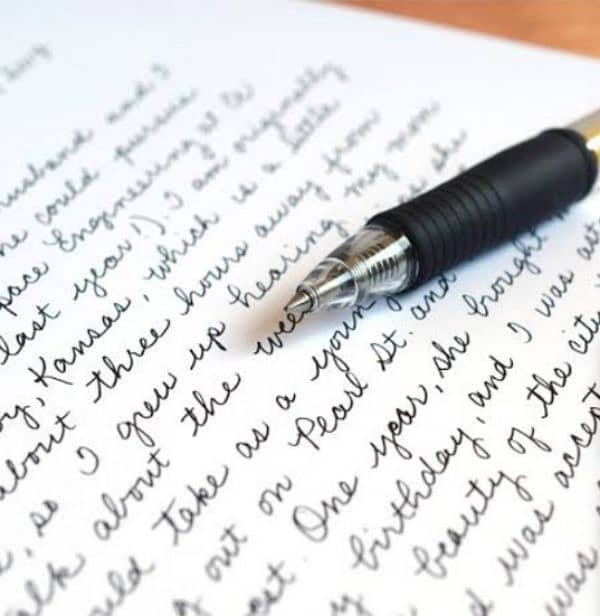 husband and I
he could pursue
space Engineering at Ce
last year!). I am originally
, Kansas, which is a little
about three hours away from
, so I grew up hearing my mom
talk about the wee she
would take as a young
out on Pearl St. and
. One year, she brought
birthday, and I was ast
beauty of the city
was accept
was